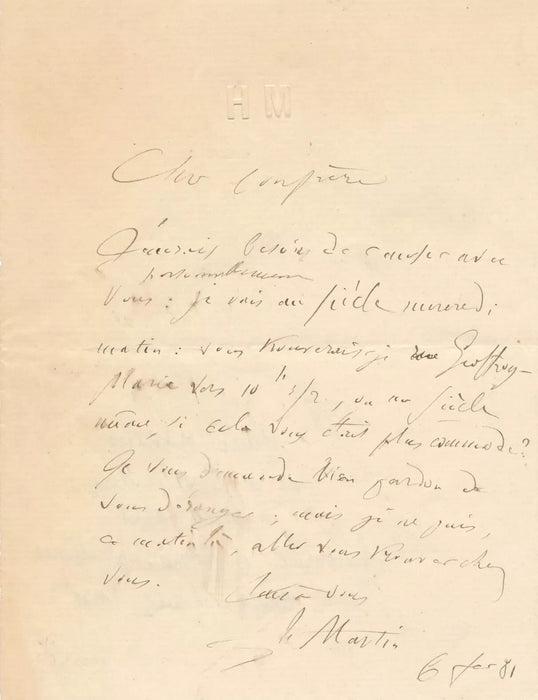 HM
Cher Confrère
J'aurais besoin de causer avec
personnellement
vous : je vais au Siècle mercredi
matin : vous trouverais-je rue Geoffroy-
Marie vers 10 h 1/2, ou au Siècle
même, si cela vous était plus commode ?
Je vous demande bien pardon de
vous déranger ; mais je ne puis,
ce matin là, aller vous trouver chez
vous.
Tout à vous
h Martin
6 fev 81